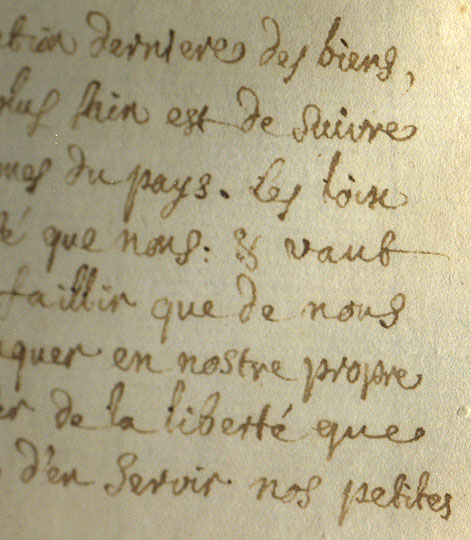 ation derniere des biens,
plus sain est de suivre
mes du pays. Les loix
é que nous: & vaut
faillir que de nous
quer en nostre propre
er de la liberté que
d'en servir nos petites